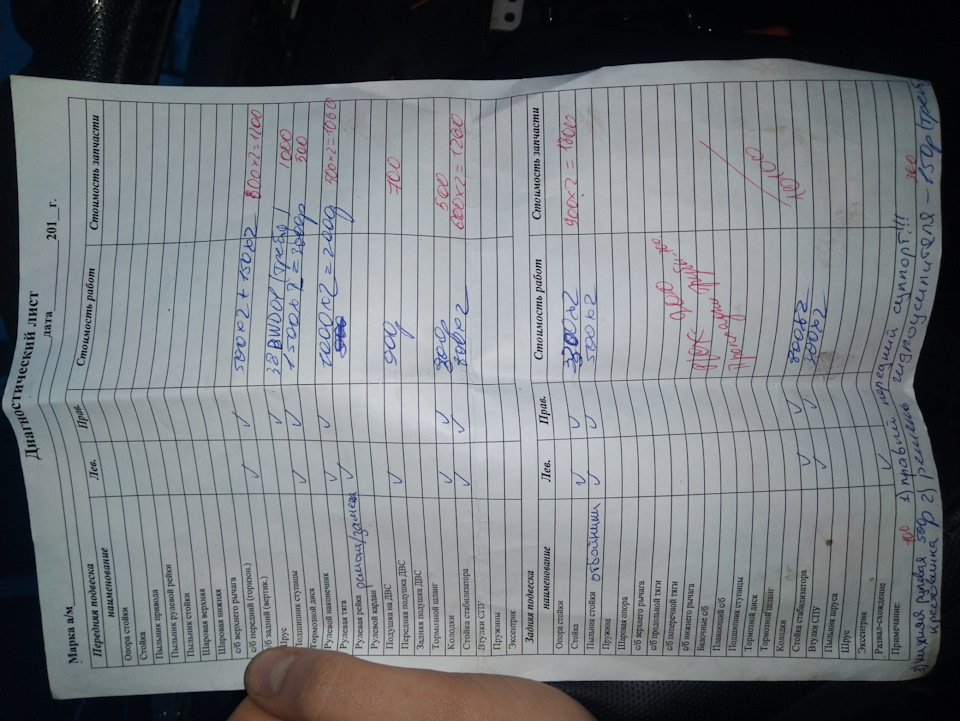 Диагностический лист
Марка а/м дата 201 г.
Передняя подвеска
наименование Лев. Прав. Стоимость работ Стоимость запчасти
Опора стойки
Стойка
Пыльник привода
Пыльник рулевой рейки
Шаровая верхняя
Шаровая нижняя
с/б верхнего рычага
с/б передний (горизон.) ✓ ✓ 500х2 + 150х2 =1100
с/б задний (вертик.)
Шрус ✓ 1000
Подшипник ступицы ✓ ✓ 1500 х 2 = 3000р 500
Тормозной диск
Рулевой наконечник ✓ ✓ 1000х2 = 2000р 500×2=1000
Рулевая тяга ✓
Рулевая рейка ремонт/замена
Рулевой кардан
Подушка на ДВС ✓ 700
Передняя подушка ДВС
Задняя подушка ДВС
Тормозной шланг
Колодки ✓ ✓ 500
Стойка стабилизатора ✓ ✓ 600×2=1200
Втулки СПУ
Пружины
Эксцентрик
Задняя подвеска
наименование Лев. Прав. Стоимость работ Стоимость запчасти
Опора стойки
Стойка ✓ ✓ 900х2 = 1800
Пыльник стойки отбойники ✓ ✓ 500х2
Пружина
Шаровая опора
с/б верхнего рычага
с/б продольной тяги
с/б поперечной тяги
с/б нижнего рычага
Балочные с/б
Плавающий с/б
Подшипник ступицы
Тормозной диск
Тормозной шланг
Колодки
Стойка стабилизатора ✓ ✓ 800х2
Втулки СПУ ✓ ✓ 300х2
Пыльник шруса
Шрус
Эксцентрик
Развал-схождение ✓
Примечание: 1) правый передний суппорт!!!
2) ремень гидроусилителя – 150р